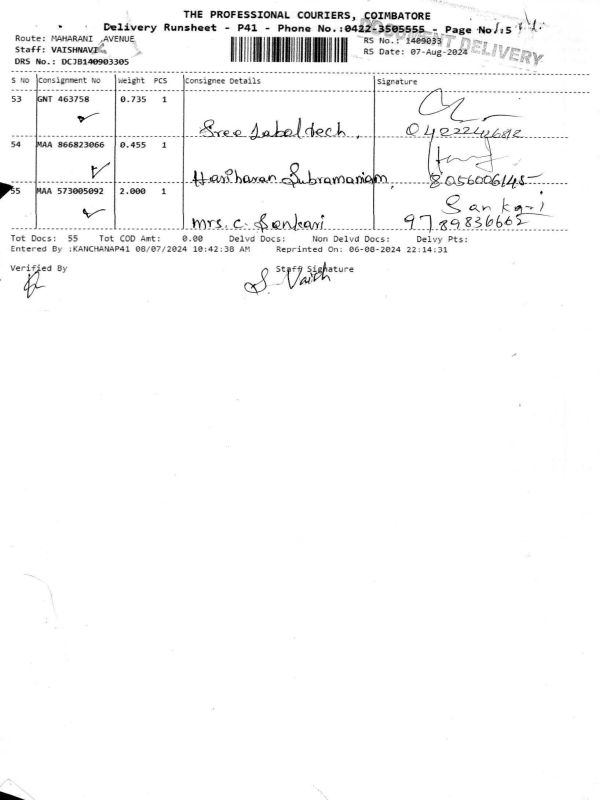 THE PROFESSIONAL COURIERS, COIMBATORE
Delivery Runsheet - P41 - Phone No.:0422-3505555 - Page No.:5
Route: MAHARANI AVENUE
RS No.: 1409033
Staff: VAISHNAVI
RS Date: 07-Aug-2024
DRS No.: DCJB140903305
DELIVERY
S No Consignment No Weight PCS Consignee Details Signature
53 GNT 463758 0.735 1
Sree Labeltech.
54 MAA 866823066 0.455 1
Hariharan Subramaniam, 8056006145
55 MAA 573005092 2.000 1 Sankari
Mrs. C. Sankari 9789836662
Tot Docs: 55 Tot COD Amt: 0.00 Delvd Docs: Non Delvd Docs: Delvy Pts:
Entered By :KANCHANAP41 08/07/2024 10:42:38 AM Reprinted On: 06-08-2024 22:14:31
Verified By Staff Signature
S. Vaish